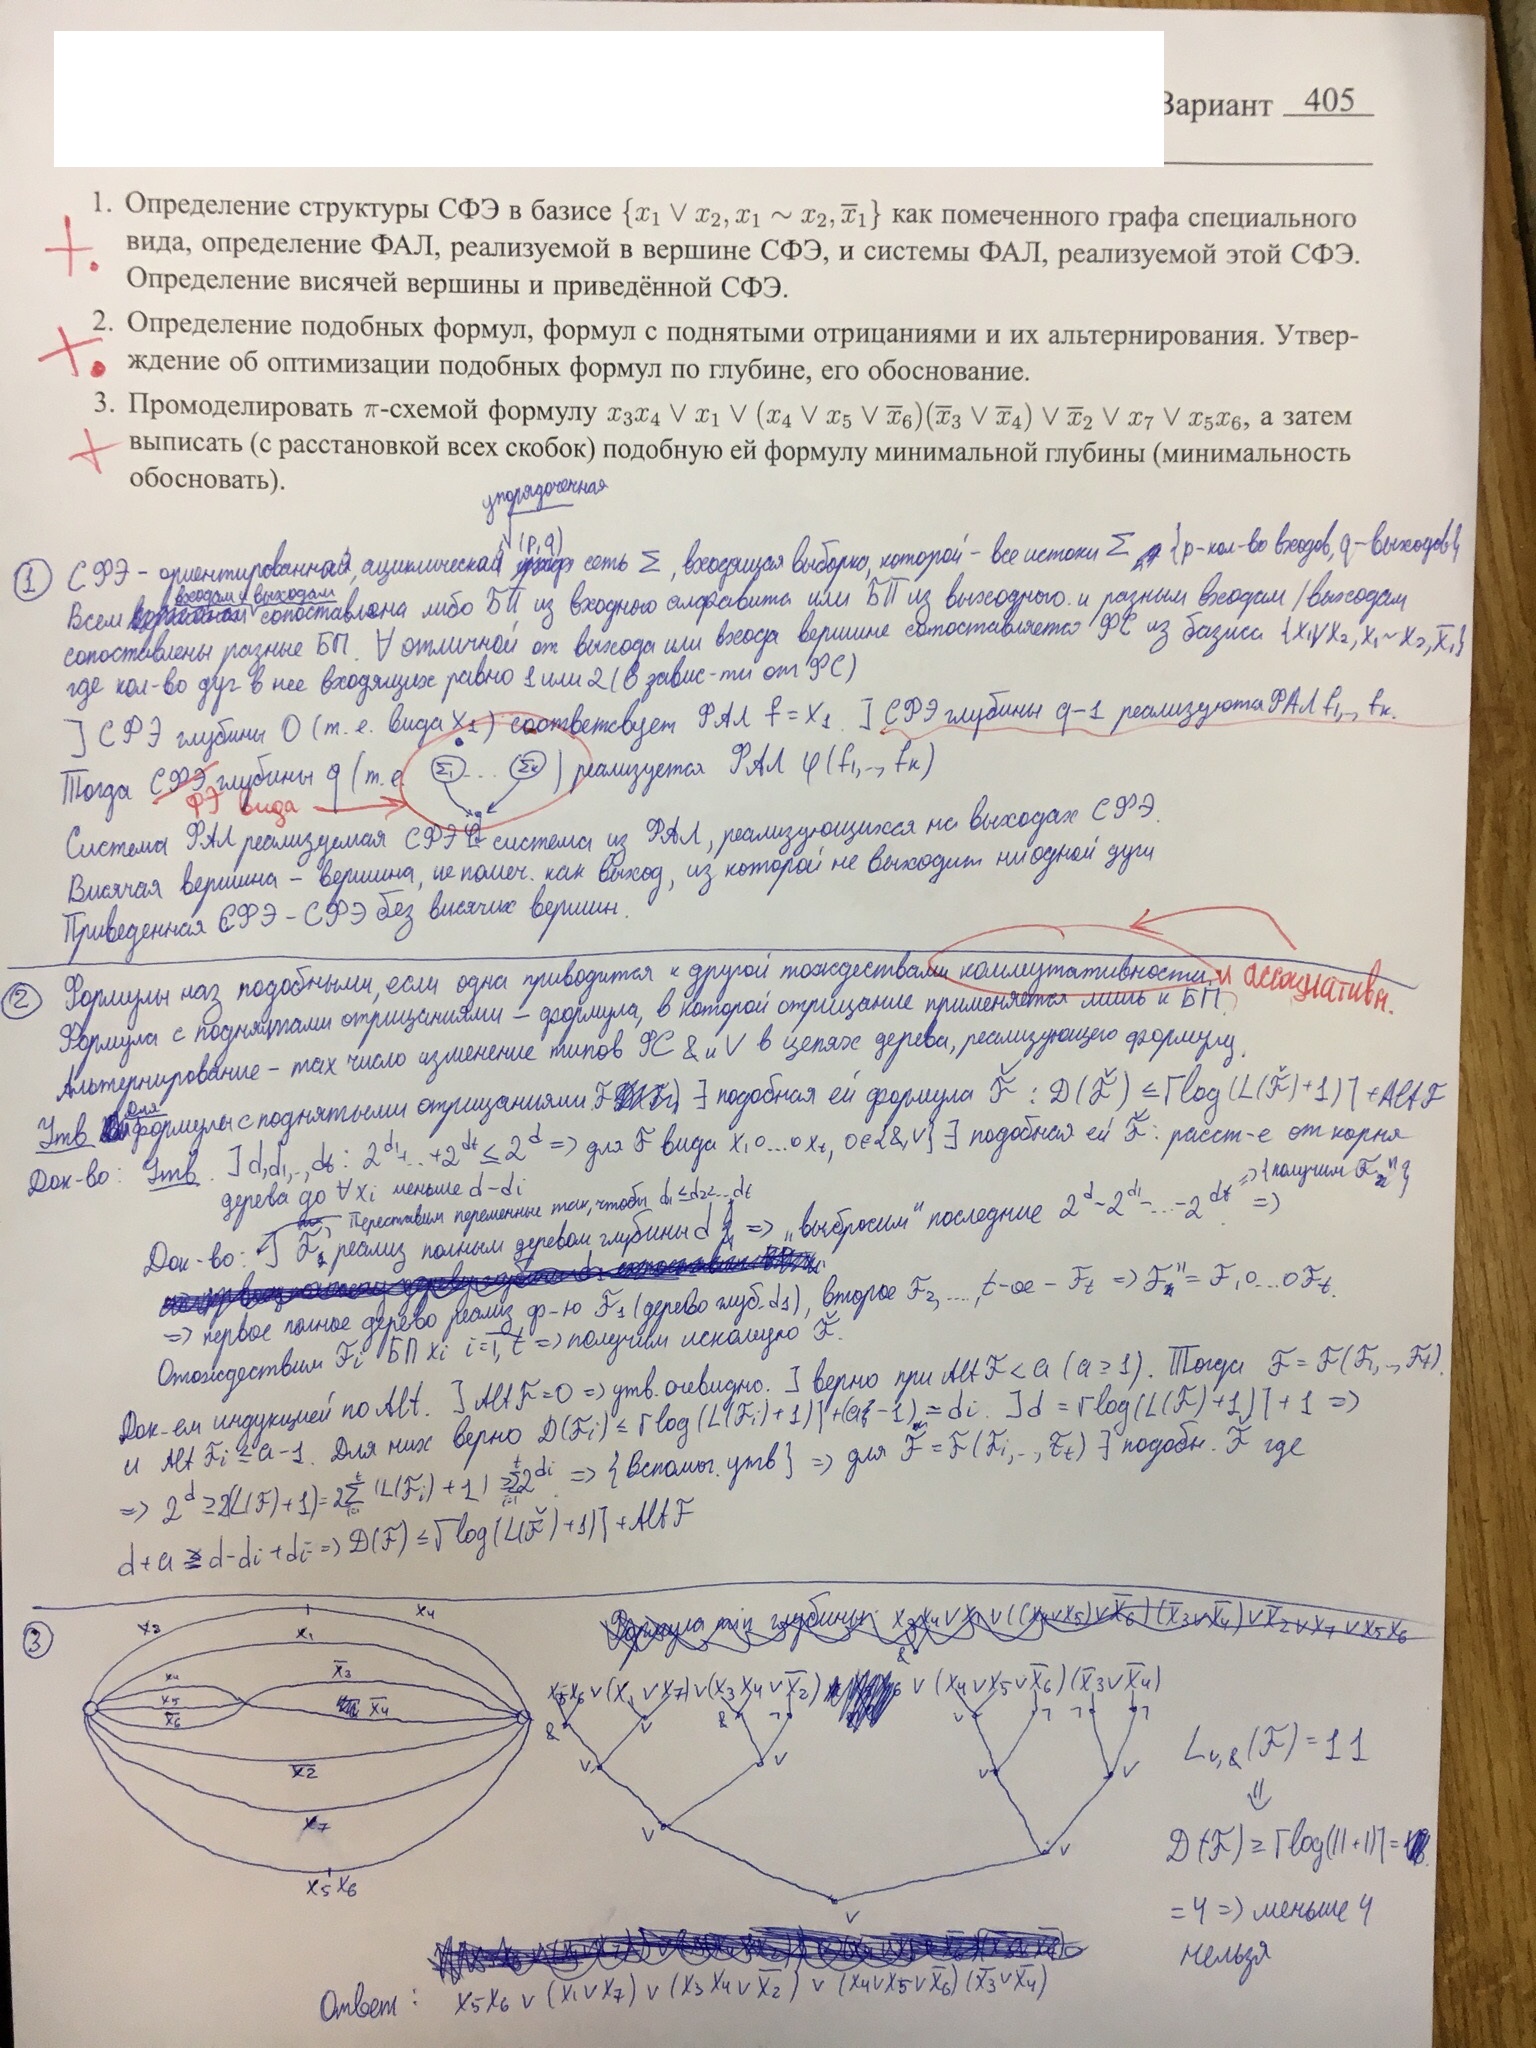 Вариант 405
1. Определение структуры СФЭ в базисе {x₁ ∨ x₂, x₁ ∼ x₂, x̅₁} как помеченного графа специального
вида, определение ФАЛ, реализуемой в вершине СФЭ, и системы ФАЛ, реализуемой этой СФЭ.
Определение висячей вершины и приведённой СФЭ.
2. Определение подобных формул, формул с поднятыми отрицаниями и их альтернирования. Утвер-
ждение об оптимизации подобных формул по глубине, его обоснование.
3. Промоделировать π-схемой формулу x₃x₄ ∨ x₁ ∨ (x₄ ∨ x₅ ∨ x̅₆)(x̅₃ ∨ x̅₄) ∨ x̅₂ ∨ x₇ ∨ x₅x₆, а затем
выписать (с расстановкой всех скобок) подобную ей формулу минимальной глубины (минимальность
обосновать).
упорядоченная
(p,q)
① СФЭ – ориентированная, ациклическая сеть Σ, входящая выборка, которой – все истоки Σ {p-кол-во входов, q-выходов}
входам и выходам
Всем сопоставлена либо БП из входного алфавита или БП из выходного и разным входам/выходам
сопоставлены разные БП. ∀ отличной от выхода или входа вершине сопоставляется ФС из базиса {x₁∨x₂, x₁∼x₂, x̅₁}
где кол-во дуг в нее входящих равно 1 или 2 (в завис-ти от ФС)
] СФЭ глубины 0 (т.е. вида x₁) соответсвует ФАЛ f = x₁. ] СФЭ глубины q-1 реализуются ФАЛ f₁,.., fₖ.
Тогда СФЭ глубины q (т.е. Σ₁ ... Σₖ φ) реализуется ФАЛ φ(f₁,.., fₖ)
ФЭ вида
Система ФАЛ реализуемая СФЭ – система из ФАЛ, реализующихся на выходах СФЭ.
Висячая вершина – вершина, не помеч. как выход, из которой не выходит ни одной дуги
Приведенная СФЭ – СФЭ без висячих вершин.
② Формулы наз подобными, если одна приводится к другой тождествами коммутативности и ассоциативн.
Формула с поднятыми отрицаниями – формула, в которой отрицание применяется лишь к БП.
Альтернирование – max число изменение типов ФС & и ∨ в цепях дерева, реализующего формулу.
Утв для формулы с поднятыми отрицаниями F ∃ подобная ей формула F̌ : D(F̌) ≤ ⌈log(L(F̌)+1)⌉ + Alt F
Док-во: Утв. ] d, d₁,.., dₜ : 2^d₁+..+2^dₜ ≤ 2^d => для F вида x₁∘...∘xₜ, ∘∈{&,∨} ∃ подобная ей F̌ : расст-е от корня
дерева до ∀xᵢ меньше d-dᵢ
Переставим переменные так, чтобы d₁≤d₂≤...dₜ
=> {получим F''}
Док-во: ] реализ полным деревом глубины d => „выбросим" последние 2^d-2^d₁-...-2^dₜ =>
=> первое полное дерево реализ ф-ю F₁ (дерево глуб. d₁), второе F₂,..., t-ое – Fₜ => F''= F₁∘...∘Fₜ.
Отождествим Fᵢ БП xᵢ i=1,t => получим искомую F̌.
Док-ем индукцией по Alt. ] Alt F=0 => утв. очевидно. ] верно при Alt F < a (a≥1). Тогда F = F(F₁,.., Fₜ)
и Alt Fᵢ ≤ a-1. Для них верно D(Fᵢ) ≤ ⌈log(L(Fᵢ)+1)⌉+(a-1) = dᵢ. ] d = ⌈log(L(F)+1)⌉+1 =>
=> 2^d ≥ 2(L(F)+1) = 2Σ(L(Fᵢ)+1) ≥ Σ2^dᵢ => {Вспомог. утв} => для F̌ = F(F₁,.., Fₜ) ∃ подобн. F где
d+a ≥ d-dᵢ+dᵢ => D(F) ≤ ⌈log(L(F̌)+1)⌉+Alt F
③ x₃ x₄
x₁
x₄ x̅₃
x₅ x̅₄
x̅₆
x̅₂
x₇
x₅ x₆
Формула min глубины: x₃x₄∨x₁∨((x₄∨x₅)∨x̅₆)(x̅₃∨x̅₄)∨x̅₂∨x₇∨x₅x₆
x₅x₆ ∨ (x₁ ∨ x₇) ∨ (x₃x₄ ∨ x̅₂) ∨ (x₄∨x₅∨x̅₆)(x̅₃∨x̅₄)
& ∨ & ¬ ∨ ¬ ¬ ¬
∨ ∨ ∨ ∨
∨ ∨
∨
L∨,&(F) = 11
⇓
D(F) ≥ ⌈log(11+1)⌉ =
= 4 => меньше 4
нельзя
Ответ: x₅x₆ ∨ (x₁∨x₇) ∨ (x₃x₄∨x̅₂) ∨ (x₄∨x₅∨x̅₆)(x̅₃∨x̅₄)